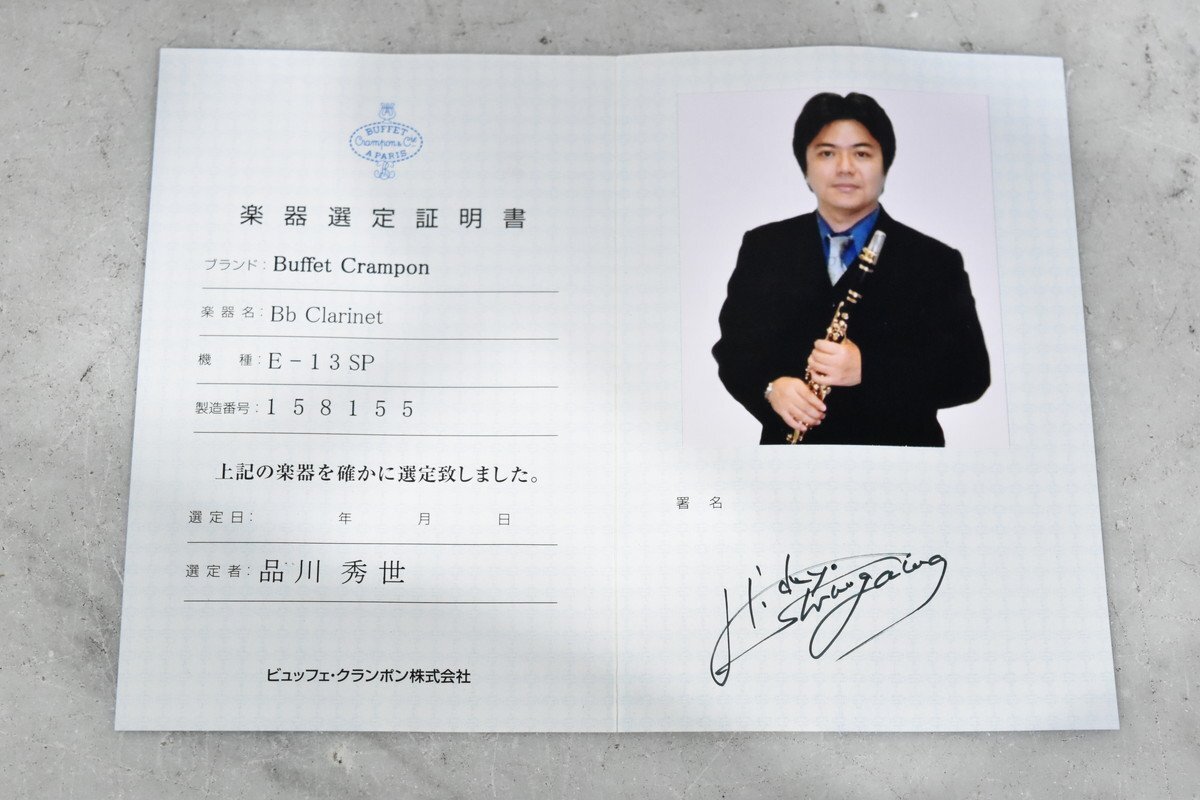 BUFFET
Crampon & Cie
A PARIS
楽器選定証明書
ブランド：Buffet Crampon
楽器名：Bb Clarinet
機　種：E－13SP
製造番号：158155
上記の楽器を確かに選定致しました。
選定日：　　年　　月　　日
選定者：品川 秀世
ビュッフェ・クランポン株式会社
署 名